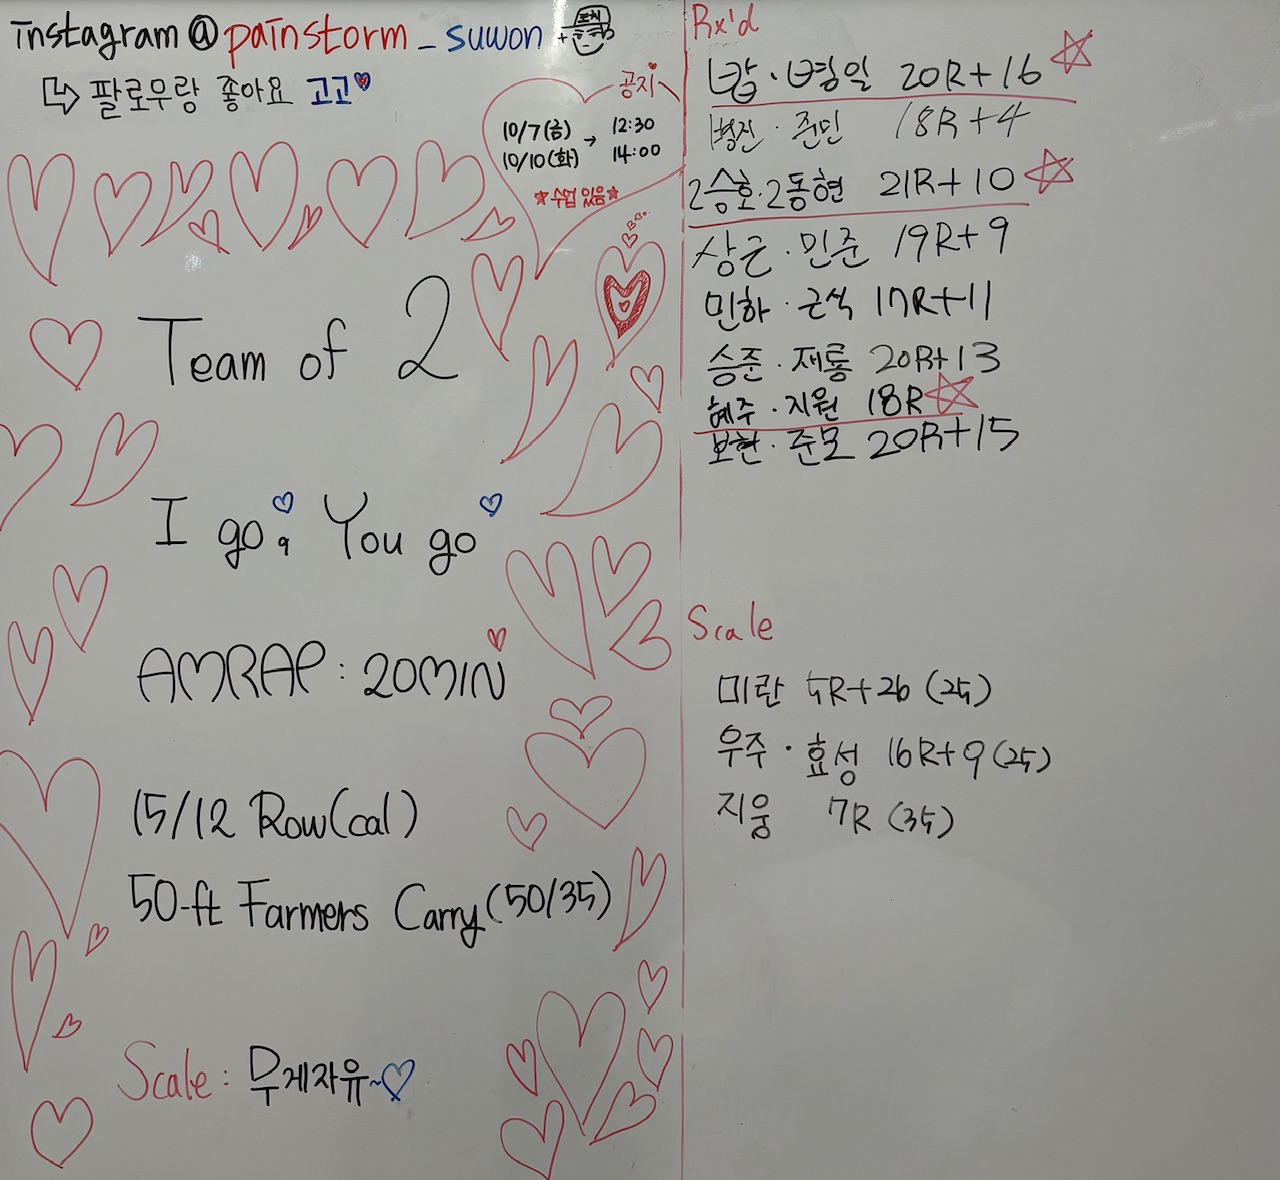 instagram@painstorm_suwon +
팔로우랑 좋아요 고고
공지
10/7(금) → 12:30
10/10(화) 14:00
수업 있음
Team of 2
I go, You go
AMRAP : 20MIN
15/12 Row(cal)
50-ft Farmers Carry(50/35)
Scale : 무게자유~
Rx'd
20R+16
병진 · 준민 18R+4
2승호·2동현 21R+10
상근 · 민준 19R+9
민하 · 근석 17R+11
승준 · 재룡 20R+13
혜주 · 지원 18R
보현 · 준모 20R+15
Scale
미란 5R+26 (25)
우주 · 효성 16R+9(25)
지웅 7R (35)